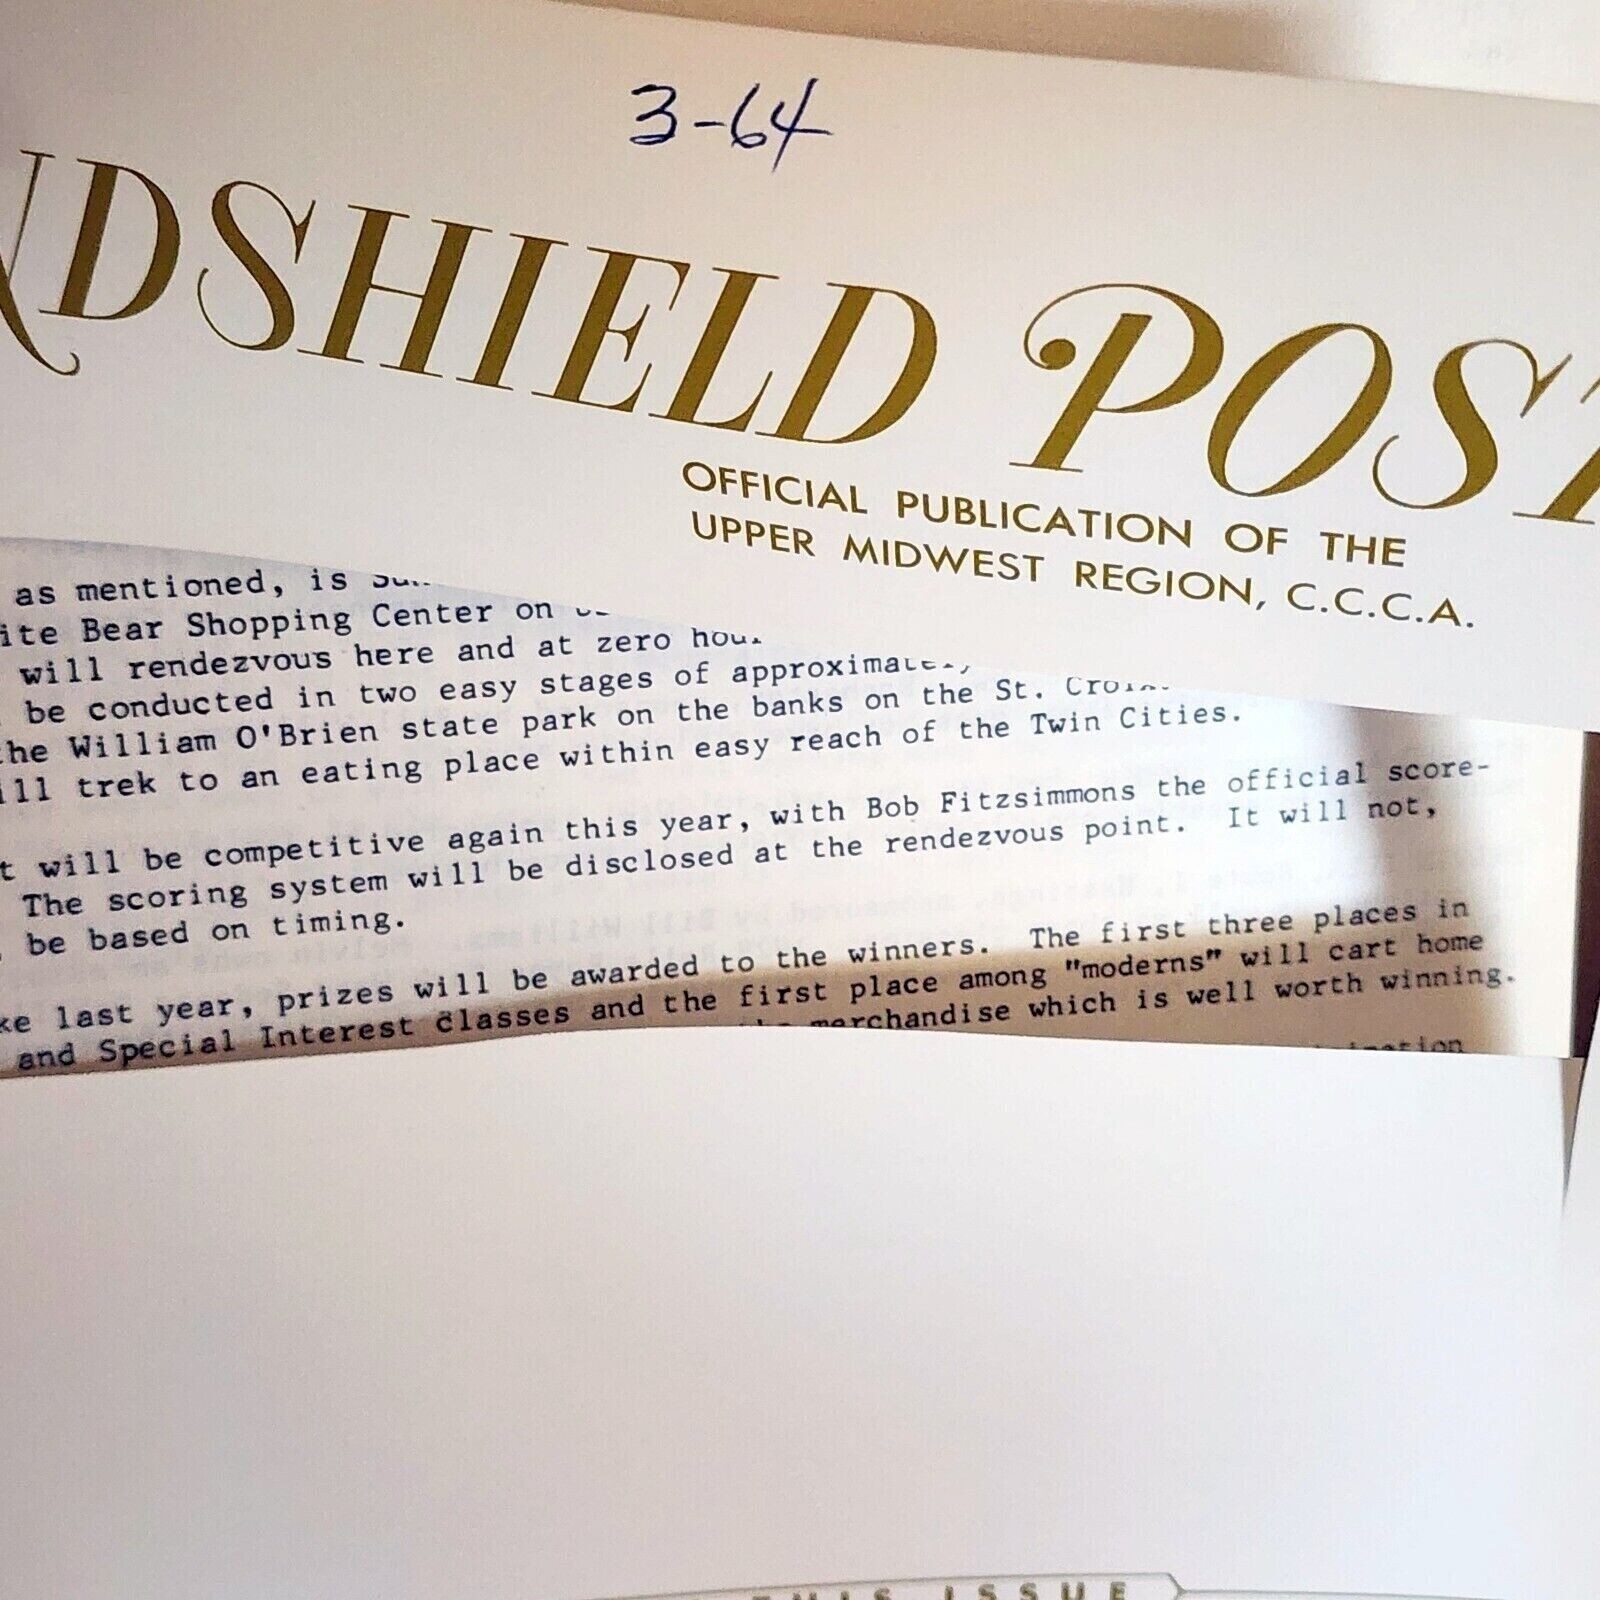 3-64
NDSHIELD POST
OFFICIAL PUBLICATION OF THE
UPPER MIDWEST REGION, C.C.C.A.
as mentioned, is
ite Bear Shopping Center on
will rendezvous here and at zero hour
be conducted in two easy stages of approximately
the William O'Brien state park on the banks on the St. Croix.
ill trek to an eating place within easy reach of the Twin Cities.
t will be competitive again this year, with Bob Fitzsimmons the official score-
The scoring system will be disclosed at the rendezvous point. It will not,
be based on timing.
ke last year, prizes will be awarded to the winners. The first three places in
and Special Interest classes and the first place among "moderns" will cart home
merchandise which is well worth winning.
THIS ISSUE